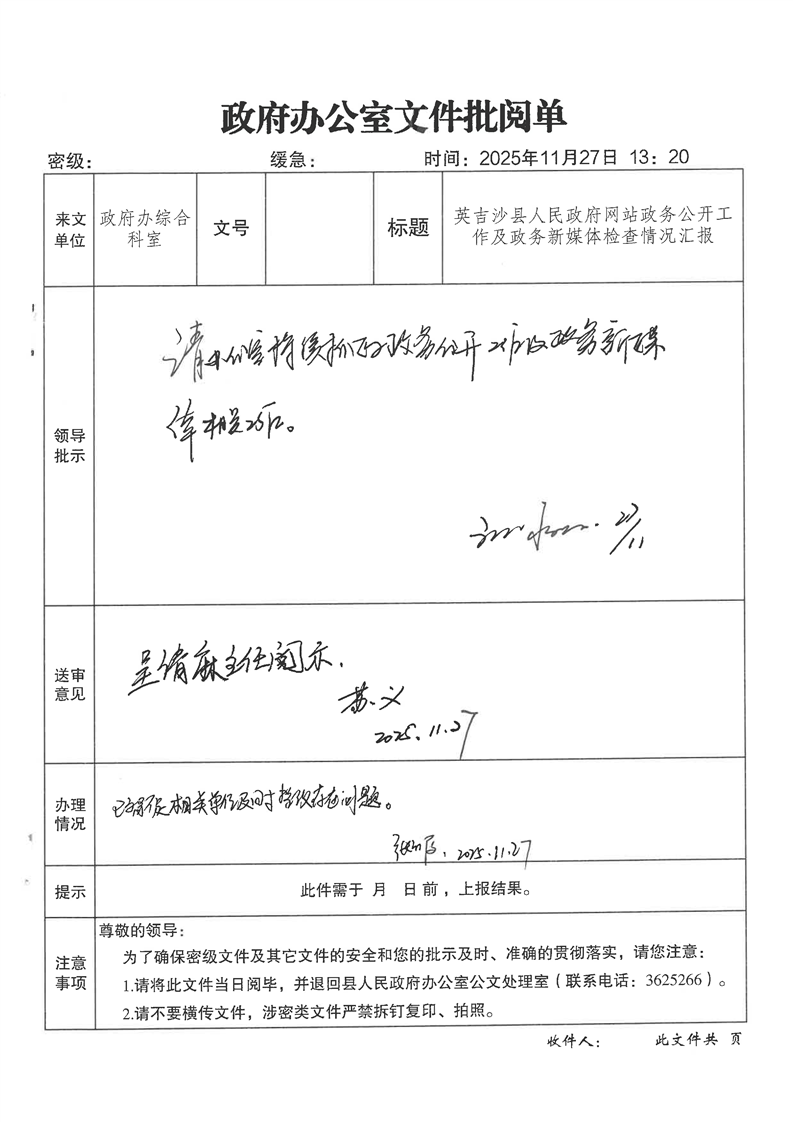 政府办公室文件批阅单
密级：
缓急：
时间：2025年11月27日 13：20
来文
单位
政府办综合
科室
文号
标题
英吉沙县人民政府网站政务公开工
作及政务新媒体检查情况汇报
领导
批示
请办公室持续抓好政务公开工作及政务新媒
体相关工作。
27/11
送审
意见
呈请麻主任阅示.
苏义
2025.11.27
办理
情况
已督促相关单位及时整改存在问题。
2025.11.27
提示
此件需于 月 日前，上报结果。
注意
事项
尊敬的领导：
为了确保密级文件及其它文件的安全和您的批示及时、准确的贯彻落实，请您注意：
1.请将此文件当日阅毕，并退回县人民政府办公室公文处理室（联系电话：3625266）。
2.请不要横传文件，涉密类文件严禁拆钉复印、拍照。
收件人： 此文件共 页